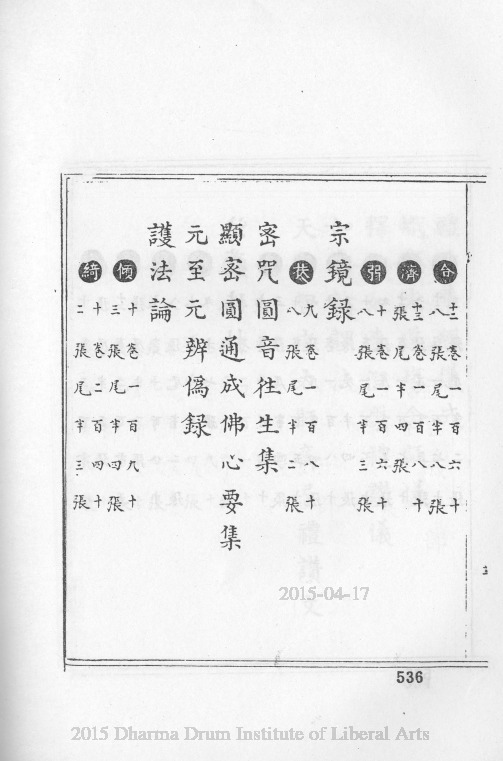 合 十二卷一百六十
八張尾半張
濟 十三卷一百八十
張尾半四張
弱 十卷一百六十
八張尾半三張
宗鏡錄
扶 九卷一百八十
八張尾半二張
密咒圓音往生集
顯密圓通成佛心要集
元至元辨偽録
護法論
傾 十卷一百九十
三張尾半四張
綺 十卷二百四十
二張尾半三張
2015-04-17
536
2015 Dharma Drum Institute of Liberal Arts